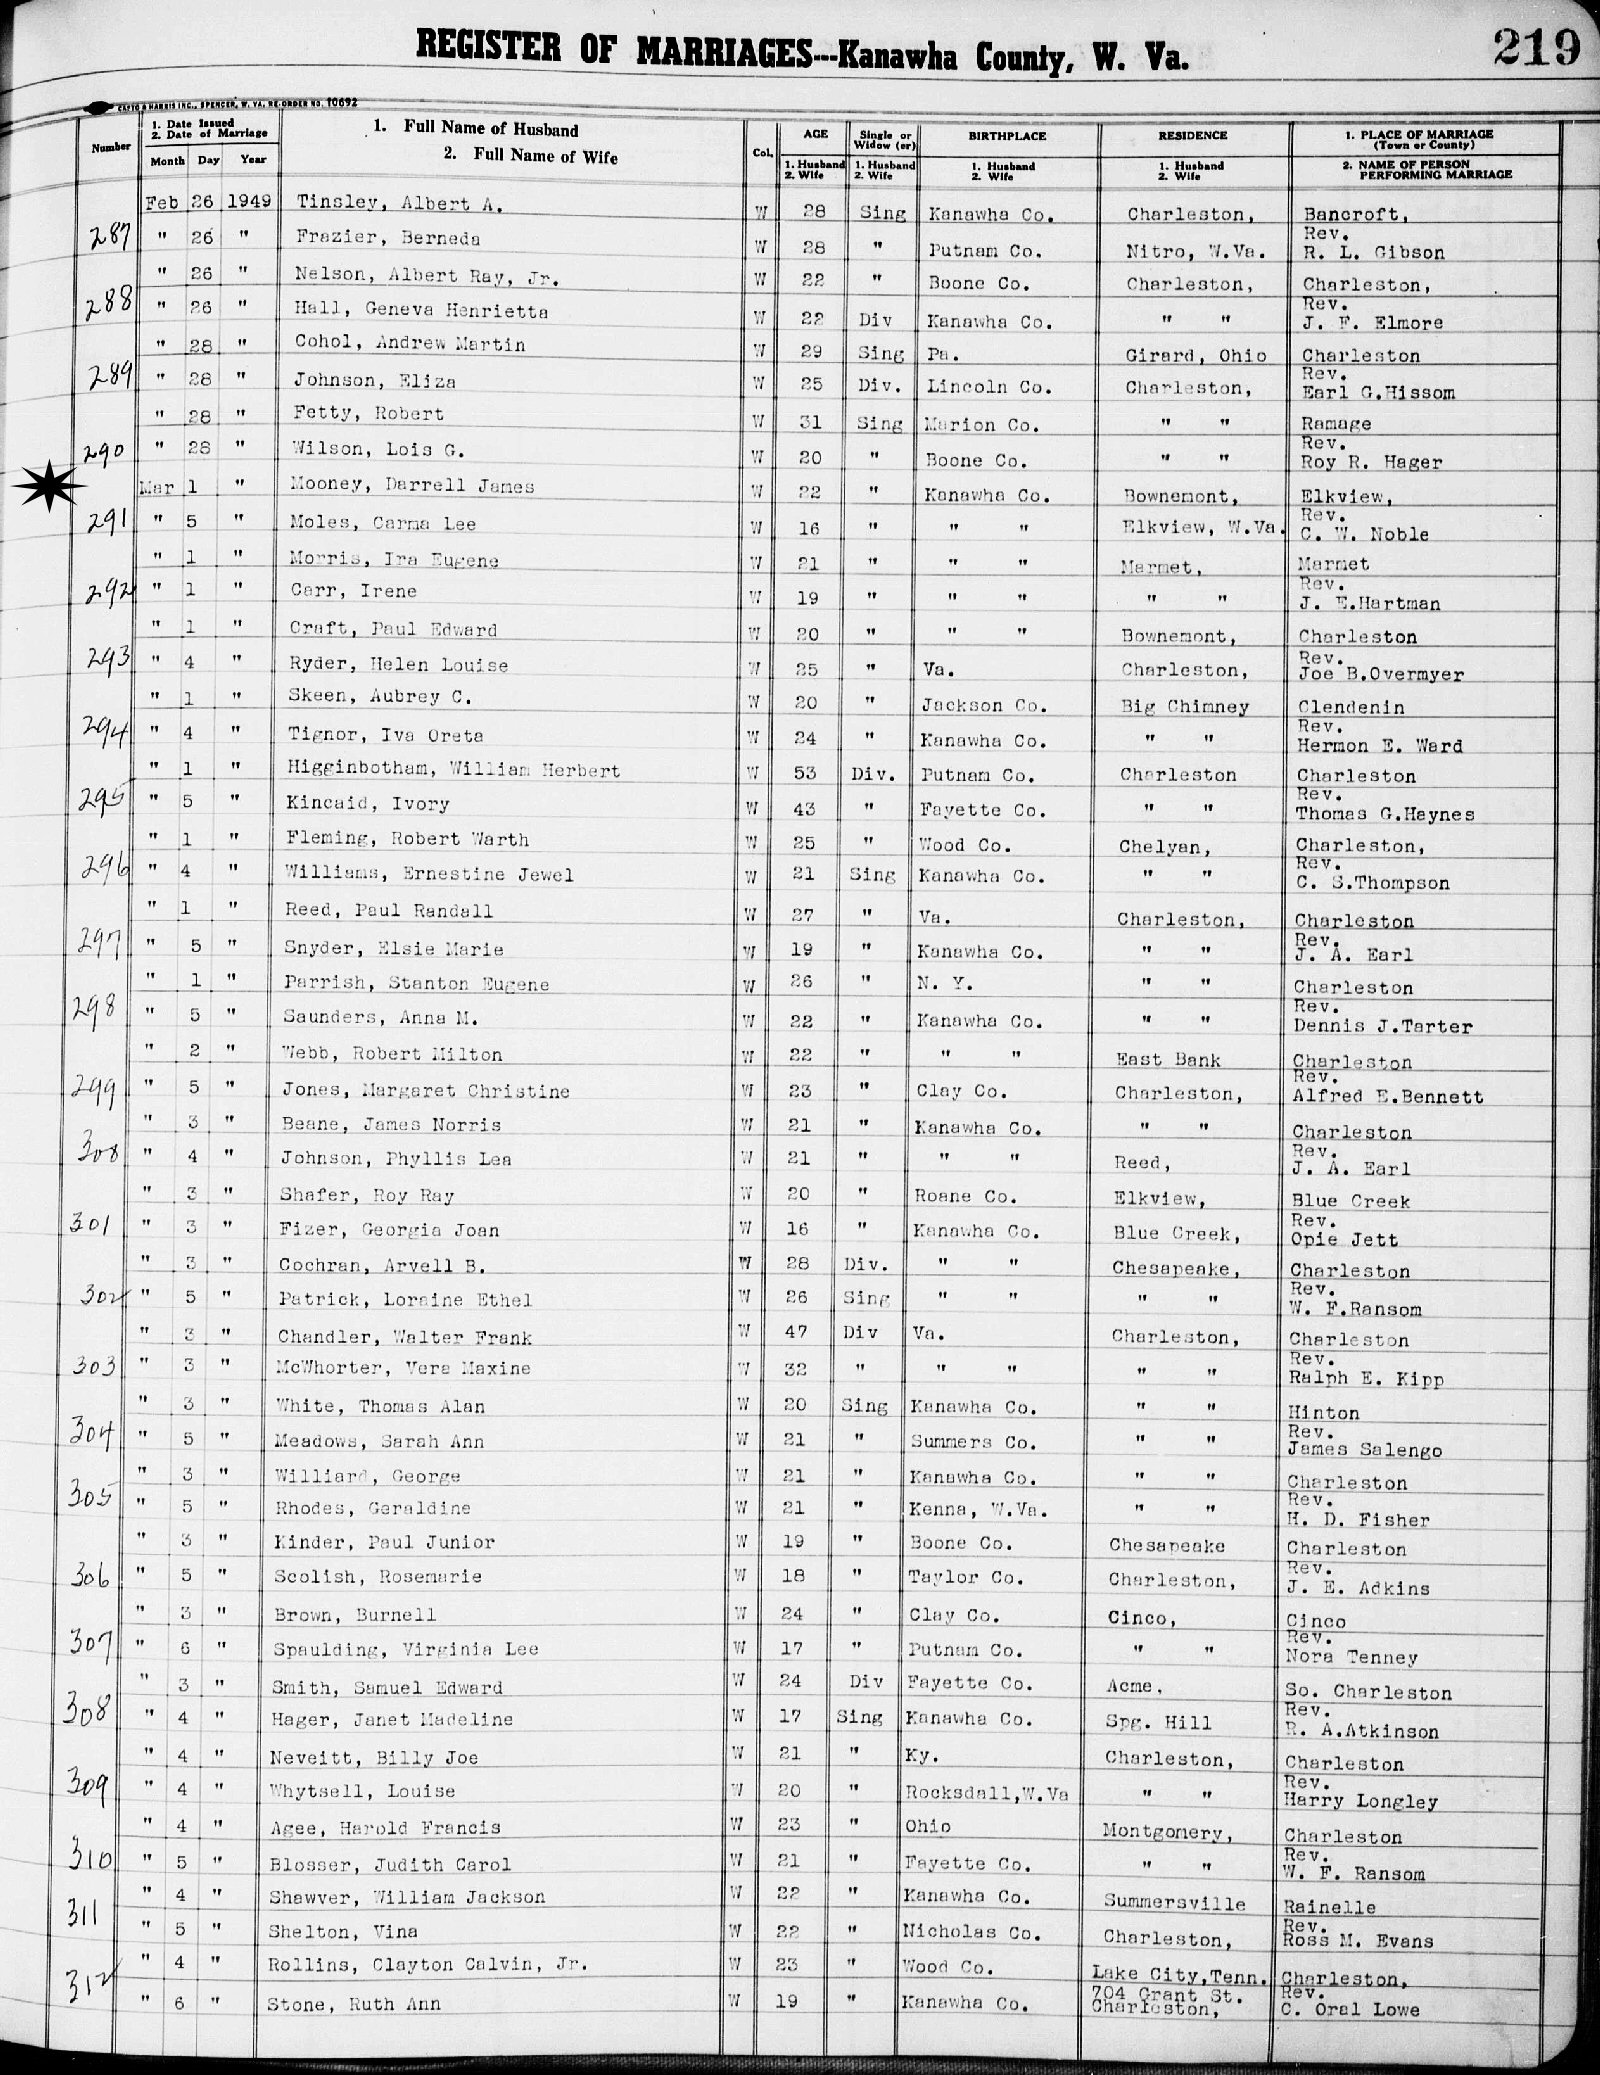 REGISTER OF MARRIAGES---Kanawha County, W. Va.
219
CASTO & HARRIS INC., SPENCER, W. VA. RE-ORDER NO. 10692
Number
1. Date Issued
2. Date of Marriage
Month Day Year
1. Full Name of Husband
2. Full Name of Wife
Col.
AGE
1. Husband
2. Wife
Single or
Widow (er)
1. Husband
2. Wife
BIRTHPLACE
1. Husband
2. Wife
RESIDENCE
1. Husband
2. Wife
1. PLACE OF MARRIAGE
(Town or County)
2. NAME OF PERSON
PERFORMING MARRIAGE
Feb 26 1949 Tinsley, Albert A. W 28 Sing Kanawha Co. Charleston, Bancroft,
287 " 26 " Frazier, Berneda W 28 " Putnam Co. Nitro, W.Va. Rev. R. L. Gibson
" 26 " Nelson, Albert Ray, Jr. W 22 " Boone Co. Charleston, Charleston,
288 " 26 " Hall, Geneva Henrietta W 22 Div Kanawha Co. " " Rev. J. F. Elmore
" 28 " Cohol, Andrew Martin W 29 Sing Pa. Girard, Ohio Charleston
289 " 28 " Johnson, Eliza W 25 Div. Lincoln Co. Charleston, Rev. Earl G.Hissom
" 28 " Fetty, Robert W 31 Sing Marion Co. " " Ramage
290 " 28 " Wilson, Lois G. W 20 " Boone Co. " " Rev. Roy R. Hager
Mar 1 " Mooney, Darrell James W 22 " Kanawha Co. Bownemont, Elkview,
291 " 5 " Moles, Carma Lee W 16 " " " Elkview, W.Va. Rev. C. W. Noble
" 1 " Morris, Ira Eugene W 21 " " " Marmet, Marmet
292 " 1 " Carr, Irene W 19 " " " " " Rev. J. E.Hartman
" 1 " Craft, Paul Edward W 20 " " " Bownemont, Charleston
293 " 4 " Ryder, Helen Louise W 25 " Va. Charleston, Rev. Joe B.Overmyer
" 1 " Skeen, Aubrey C. W 20 " Jackson Co. Big Chimney Clendenin
294 " 4 " Tignor, Iva Oreta W 24 " Kanawha Co. " " Rev. Hermon E. Ward
" 1 " Higginbotham, William Herbert W 53 Div. Putnam Co. Charleston Charleston
295 " 5 " Kincaid, Ivory W 43 " Fayette Co. " " Rev. Thomas G.Haynes
" 1 " Fleming, Robert Warth W 25 " Wood Co. Chelyan, Charleston,
296 " 4 " Williams, Ernestine Jewel W 21 Sing Kanawha Co. " " Rev. C. S.Thompson
" 1 " Reed, Paul Randall W 27 " Va. Charleston, Charleston
297 " 5 " Snyder, Elsie Marie W 19 " Kanawha Co. " " Rev. J. A. Earl
" 1 " Parrish, Stanton Eugene W 26 " N. Y. " " Charleston
298 " 5 " Saunders, Anna M. W 22 " Kanawha Co. " " Rev. Dennis J.Tarter
" 2 " Webb, Robert Milton W 22 " " " East Bank Charleston
299 " 5 " Jones, Margaret Christine W 23 " Clay Co. Charleston, Rev. Alfred E.Bennett
" 3 " Beane, James Norris W 21 " Kanawha Co. " " Charleston
300 " 4 " Johnson, Phyllis Lea W 21 " " " Reed, Rev. J. A. Earl
" 3 " Shafer, Roy Ray W 20 " Roane Co. Elkview, Blue Creek
301 " 3 " Fizer, Georgia Joan W 16 " Kanawha Co. Blue Creek, Rev. Opie Jett
" 3 " Cochran, Arvell B. W 28 Div. " " Chesapeake, Charleston
302 " 5 " Patrick, Loraine Ethel W 26 Sing " " " " Rev. W. F.Ransom
" 3 " Chandler, Walter Frank W 47 Div Va. Charleston, Charleston
303 " 3 " McWhorter, Vera Maxine W 32 " " " " " Rev. Ralph E. Kipp
" 3 " White, Thomas Alan W 20 Sing Kanawha Co. " " Hinton
304 " 5 " Meadows, Sarah Ann W 21 " Summers Co. " " Rev. James Salengo
" 3 " Williard, George W 21 " Kanawha Co. " " Charleston
305 " 5 " Rhodes, Geraldine W 21 " Kenna, W.Va. " " Rev. H. D. Fisher
" 3 " Kinder, Paul Junior W 19 " Boone Co. Chesapeake Charleston
306 " 5 " Scolish, Rosemarie W 18 " Taylor Co. Charleston, Rev. J. E. Adkins
" 3 " Brown, Burnell W 24 " Clay Co. Cinco, Cinco
307 " 6 " Spaulding, Virginia Lee W 17 " Putnam Co. " " Rev. Nora Tenney
" 3 " Smith, Samuel Edward W 24 Div Fayette Co. Acme, So. Charleston
308 " 4 " Hager, Janet Madeline W 17 Sing Kanawha Co. Spg. Hill Rev. R. A.Atkinson
" 4 " Neveitt, Billy Joe W 21 " Ky. Charleston, Charleston
309 " 4 " Whytsell, Louise W 20 " Rocksdall,W.Va " " Rev. Harry Longley
" 4 " Agee, Harold Francis W 23 " Ohio Montgomery, Charleston
310 " 5 " Blosser, Judith Carol W 21 " Fayette Co. " " Rev. W. F. Ransom
" 4 " Shawver, William Jackson W 22 " Kanawha Co. Summersville Rainelle
311 " 5 " Shelton, Vina W 22 " Nicholas Co. Charleston, Rev. Ross M. Evans
" 4 " Rollins, Clayton Calvin, Jr. W 23 " Wood Co. Lake City,Tenn. Charleston,
312 " 6 " Stone, Ruth Ann W 19 " Kanawha Co. 704 Grant St. Charleston, Rev. C. Oral Lowe